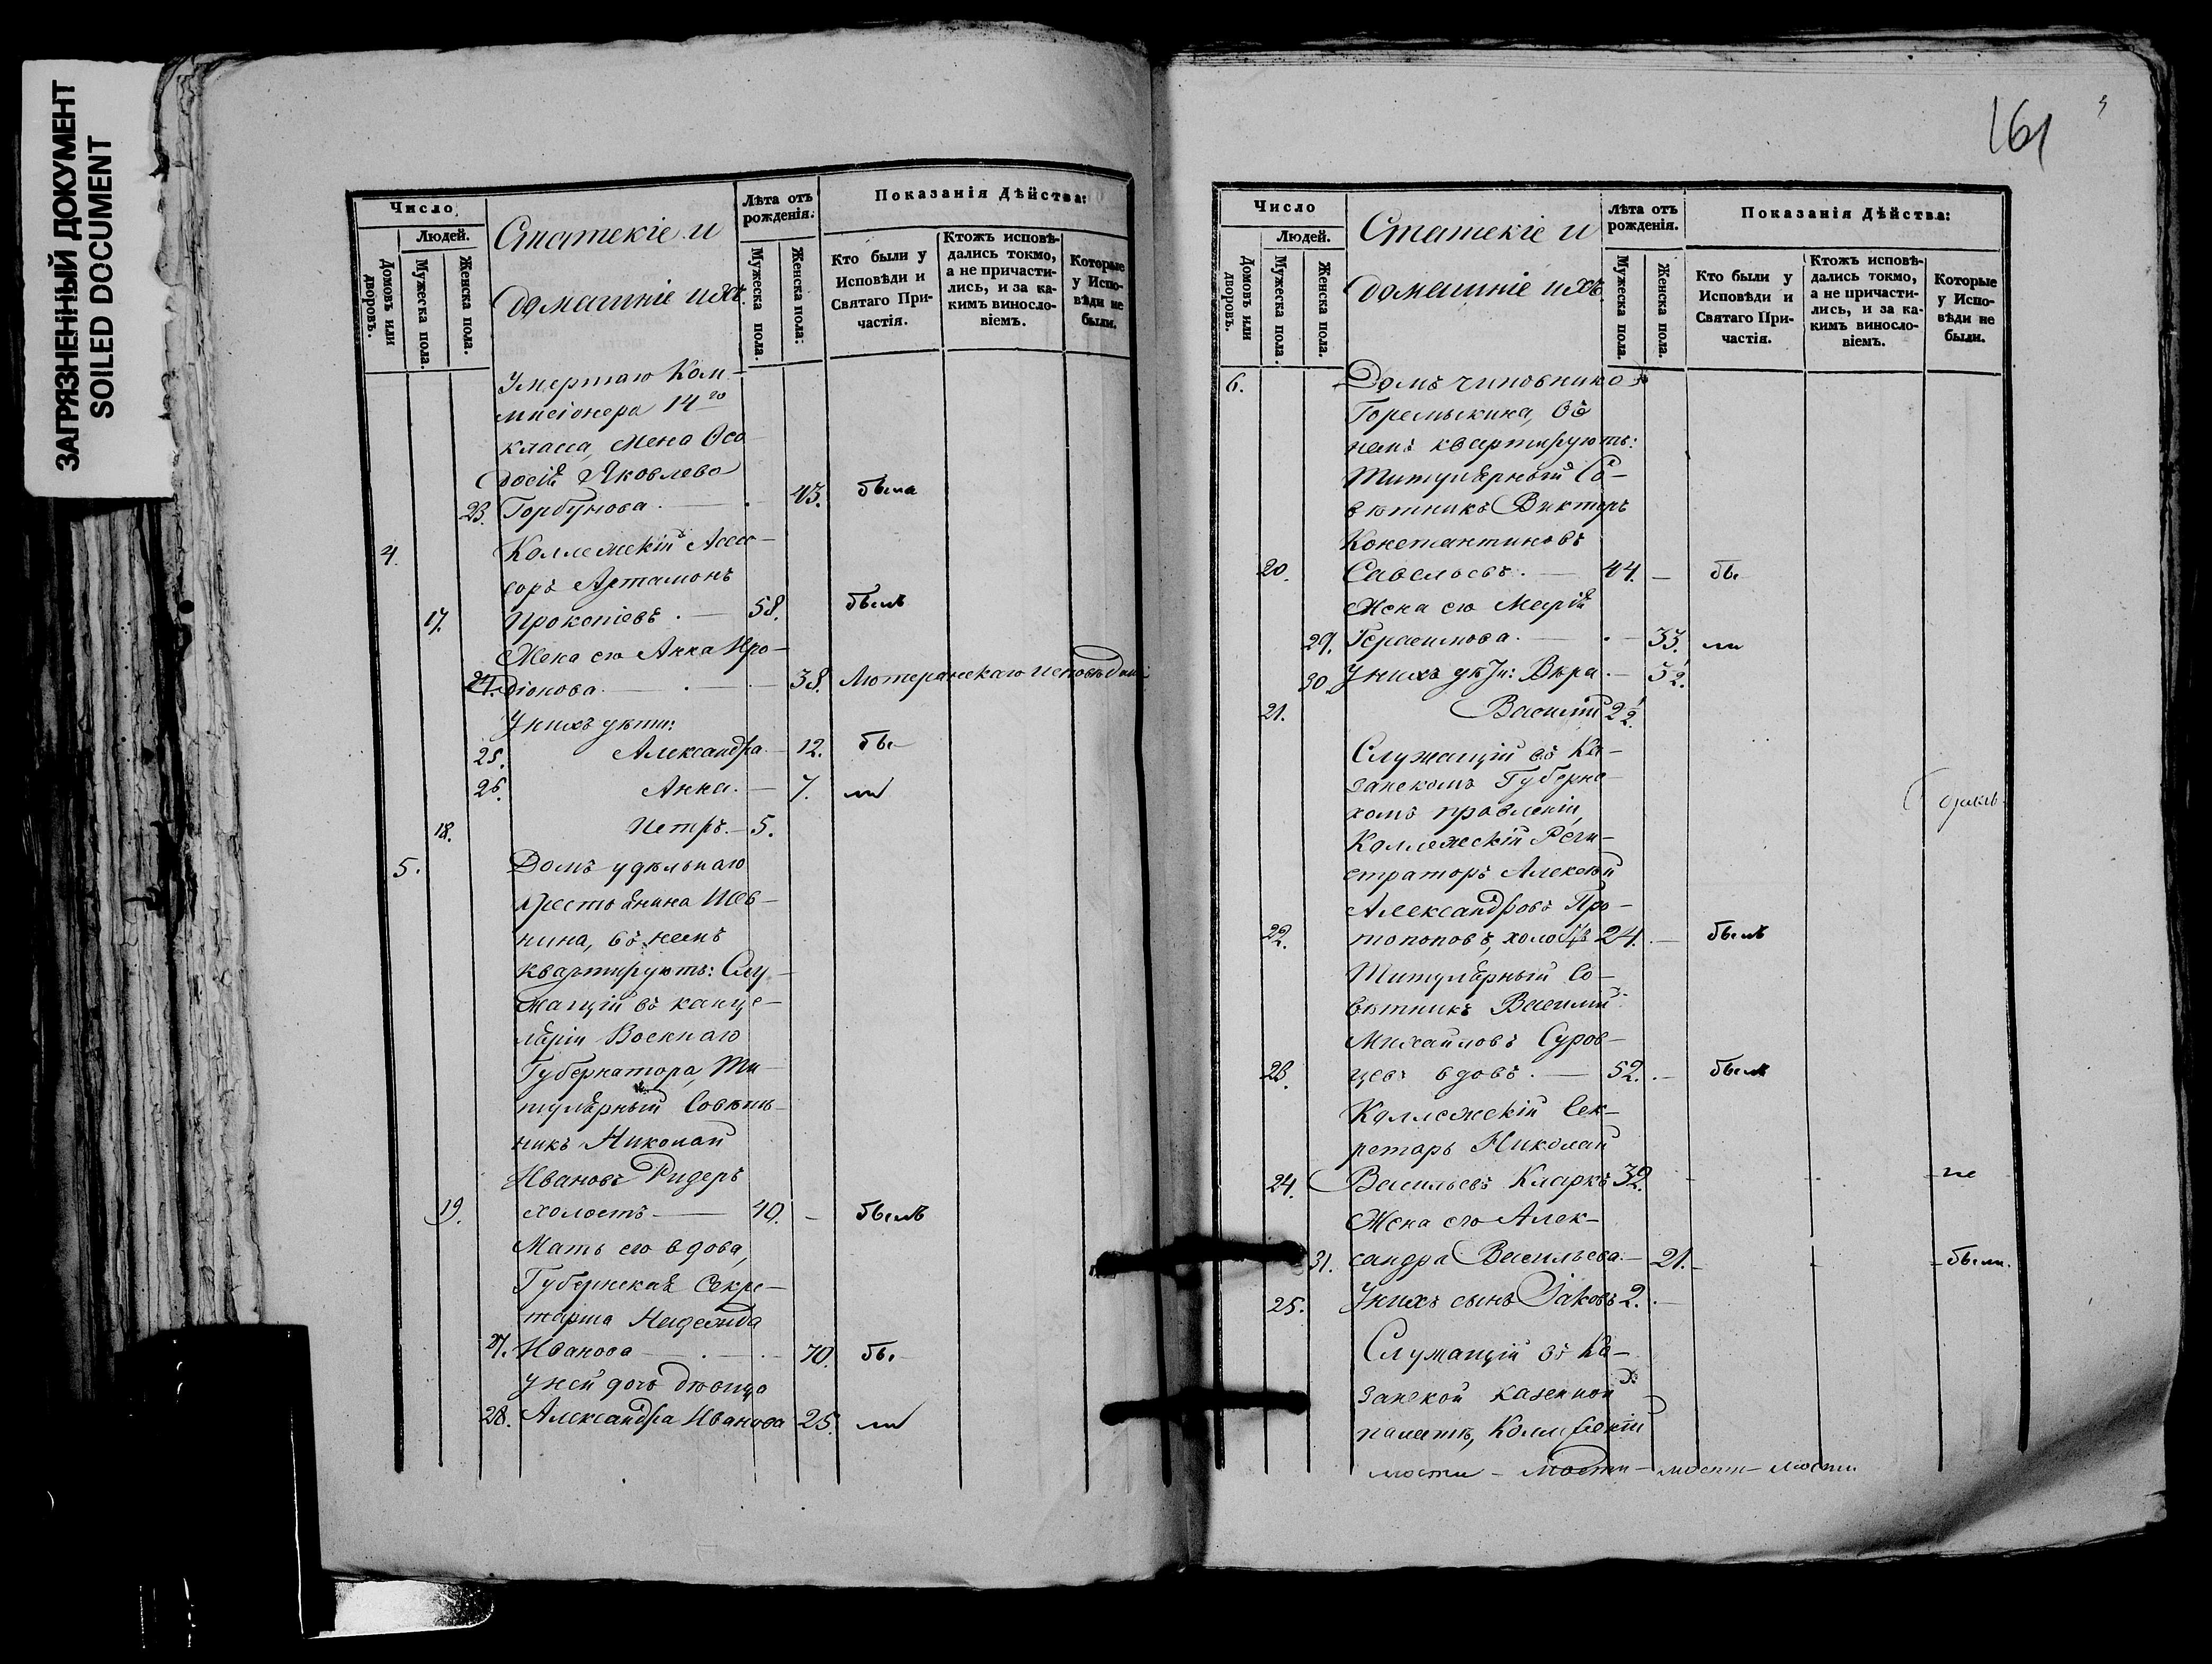 ЗАГРЯЗНЕННЫЙ ДОКУМЕНТ
SOILED DOCUMENT
Число
Людей.
Домовъ или дворовъ.
Мужеска пола.
Женска пола.
Статскіе и
домашніе ихъ.
Лѣта отъ рожденія.
Мужеска пола.
Женска пола.
Показанія Дѣйства:
Кто были у Исповѣди и Святаго Причастія.
Ктожъ исповѣдались токмо, а не причастились, и за какимъ винословіемъ.
Которые у Исповѣди не были.
Умершаго Ком-
мисіонера 14го
класса, жена Ѳео-
досія Яковлева
23. Горбунова. 43. была
4. Коллежскій Ассес-
соръ Артамонъ
17. Прокопіевъ. 58. былъ
Жена его Анна Иро-
24. діонова. 38. Лютеранскаго исповѣданія
У нихъ дѣти:
25. Александра. 12. бы-
26. Анна. 7. ли
18. Петръ. 5.
5. Домъ удѣльнаго
крестьянина Шев-
нина, въ немъ
квартируютъ: Слу-
жащій въ канце-
ляріи Военнаго
Губернатора, Ти-
тулярный Совѣт-
никъ Николай
Ивановъ Ридеръ
19. холостъ 40. былъ
Мать его вдова,
Губернская Секре-
тарша Надежда
27. Иванова 70. бы-
у ней дочь дѣвица
28. Александра Иванова 25. ли
161
Число
Людей.
Домовъ или дворовъ.
Мужеска пола.
Женска пола.
Статскіе и
домашніе ихъ.
Лѣта отъ рожденія.
Мужеска пола.
Женска пола.
Показанія Дѣйства:
Кто были у Исповѣди и Святаго Причастія.
Ктожъ исповѣдались токмо, а не причастились, и за какимъ винословіемъ.
Которые у Исповѣди не были.
6. Домъ чиновника
Горемыкина, въ
немъ квартируютъ:
Титулярный Со-
вѣтникъ Викторъ
Константиновъ
20. Савельевъ. 44. бы
Жена его Марія
29. Герасимова. 33. ли
30. У нихъ дѣти: Вѣра. 5½.
21. Василій 2½.
Служащій въ Ка-
занскомъ Губернс-
комъ правленіи,
Коллежскій Реги-
страторъ Алексѣй
Александровъ Про-
22. топоповъ, холостъ 24. былъ
Титулярный Со-
вѣтникъ Василій
Михайловъ Суров-
23. цевъ вдовъ. 52. былъ
Коллежскій Сек-
ретарь Николай
24. Васильевъ Кларкъ 32. не
Жена его Алек-
31. сандра Васильева. 21. были.
25. У нихъ сынъ Іаковъ 2.
Служащій въ Ка-
занской казенной
палатѣ, Коллежскій